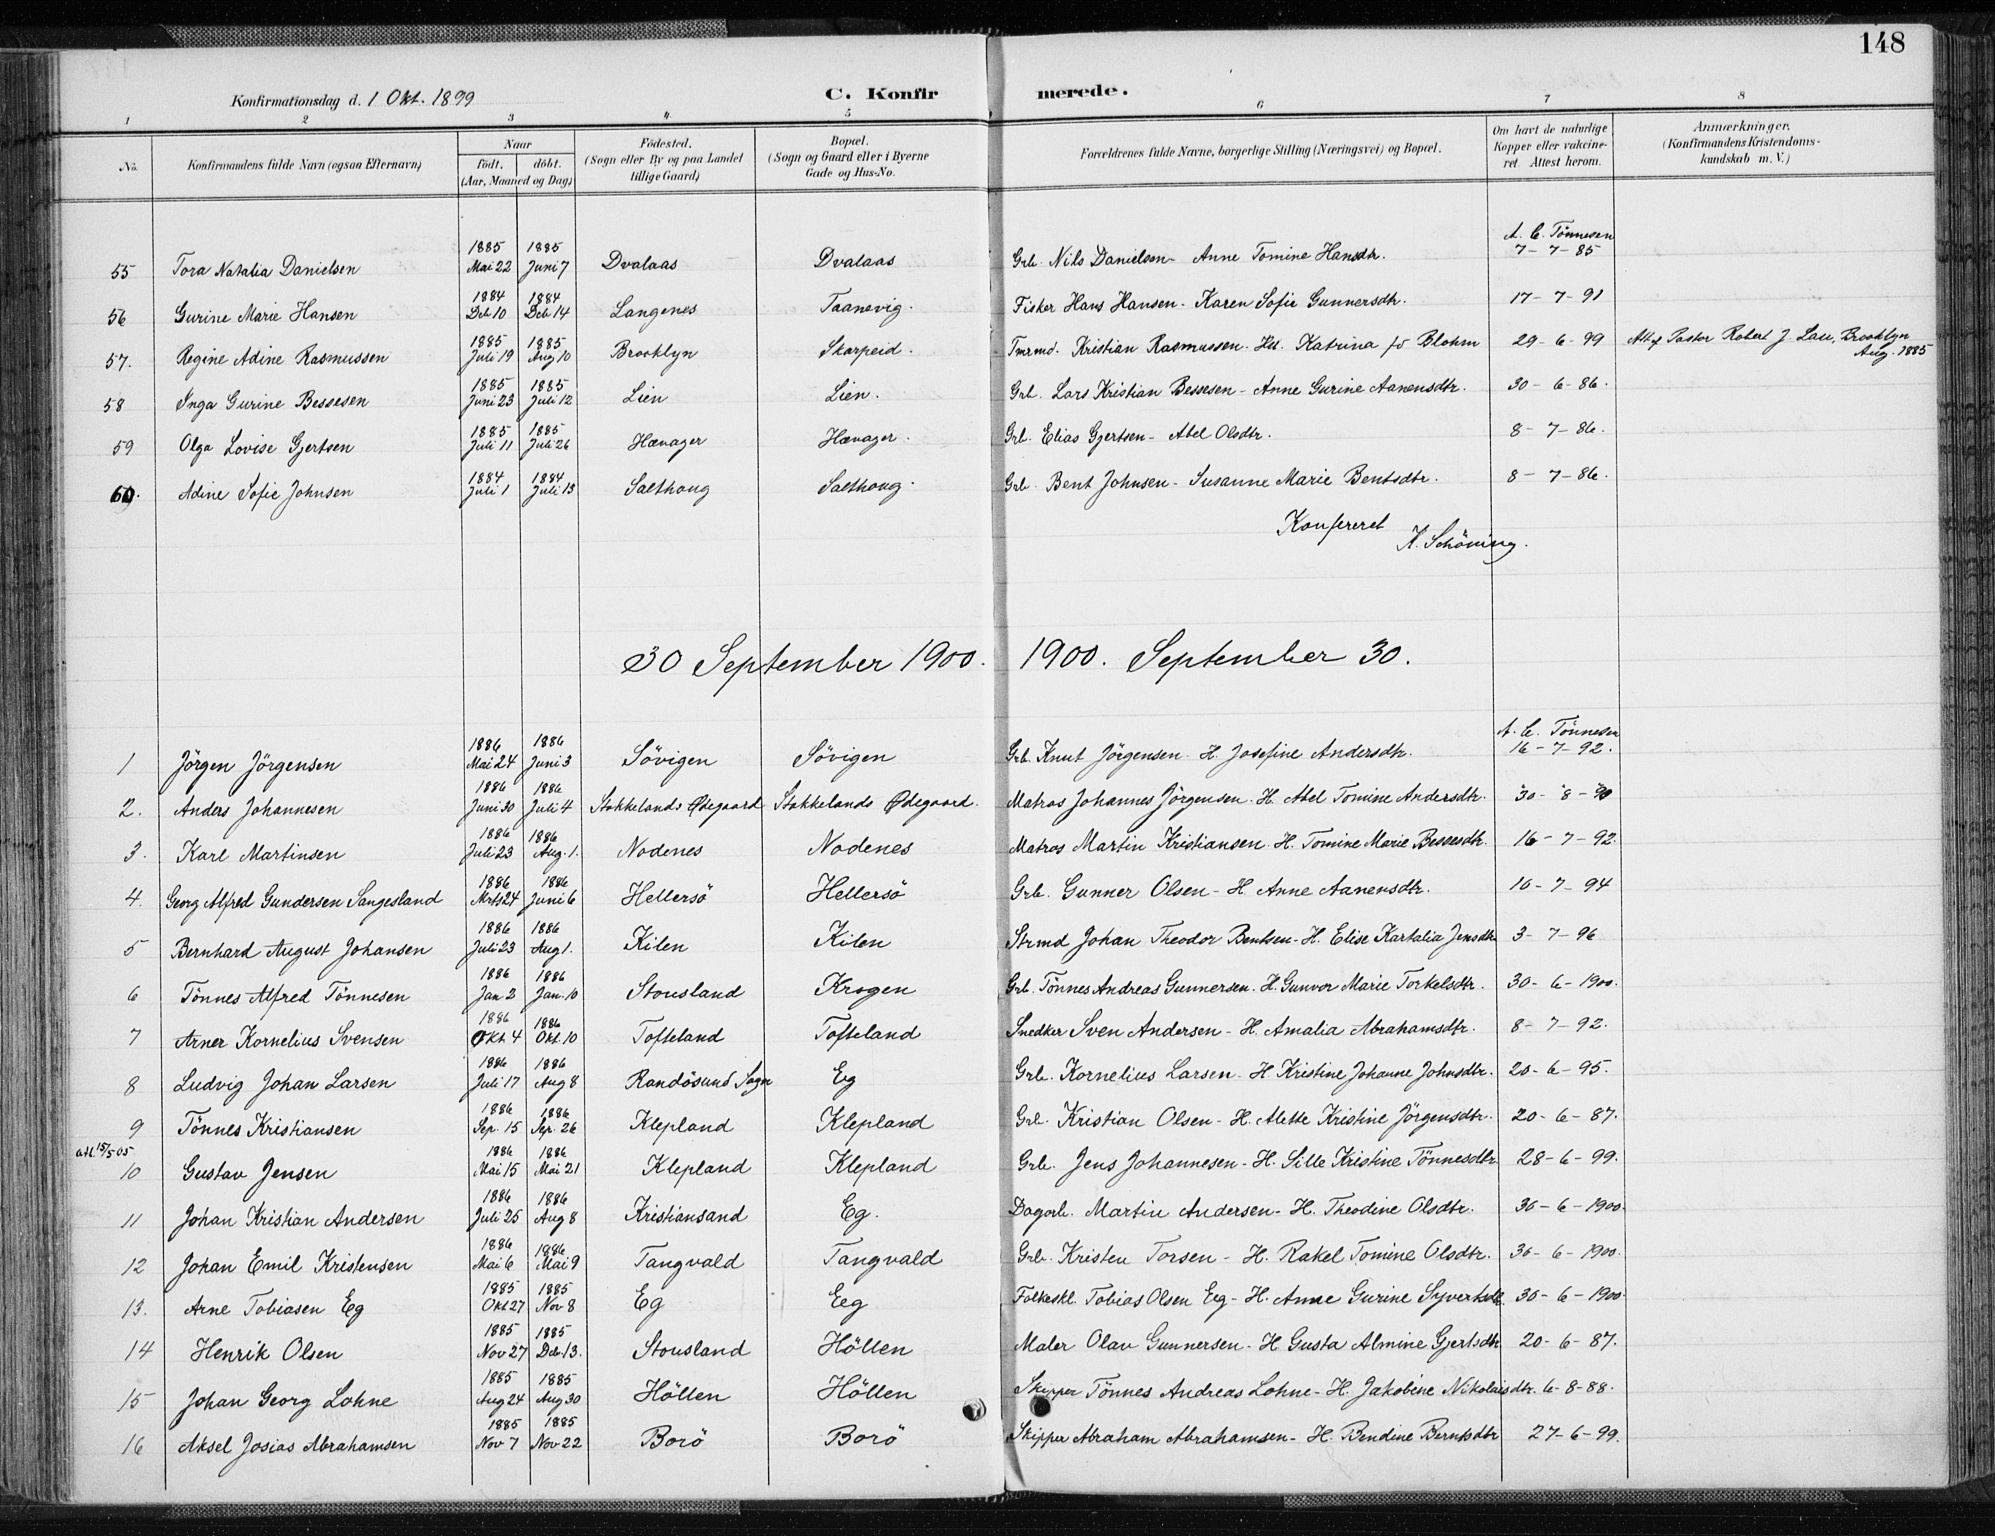 148
Konfirmationsdag d. 1 Okt. 1899 C. Konfirmerede.
1 2 3 4 5 6 7 8
No. Konfirmandens fulde Navn (ogsaa Efternavn) Naar födt. döbt. (Aar, Maaned og Dag) Födested. (Sogn eller By og paa Landet tillige Gaard) Bopæl. (Sogn og Gaard eller i Byerne Gade og Hus-No. Forældrenes fulde Navne, borgerlige Stilling (Næringsvei) og Bopæl. Om havt de naturlige Kopper eller vakcineret. Attest herom. Anmærkninger. (Konfirmandens Kristendomskundskab m. V.)
A. C. Tönnesen
55 Tora Natalia Danielsen 1885 Mai 22 1885 Juni 7 Dvalaas Dvalaas Grb. Nils Danielsen - Anne Tomine Hansdtr. 7-7-85
56 Gurine Marie Hansen 1884 Deb 10 1884 Deb 14 Langenes Taanevig. Fisker Hans Hansen - Karen Sofie Gunnersdtr. 17-7-91
57. Regine Adine Rasmussen 1885 Juli 19 1885 Aug 10 Brooklyn Skarpeid. Tmrmd. Kristian Rasmussen - Hu. Katrina fö Blohm 29-6-99 Att. f. Pastor Robert J. Lau, Brooklyn Aug. 1885
58 Inga Gurine Bessesen 1885 Juni 23 1885 Juli 12 Lien Lien. Grb. Lars Kristian Bessesen - Anne Gurine Aanensdtr. 30-6-86.
59 Olga Lovise Gjertsen 1885 Juli 11 1885 Juli 26 Hævager Hævager. Grb. Elias Gjertsen - Abel Olsdtr. 8-7-86.
60. Adine Sofie Johnsen 1884 Juli 1 1884 Juli 13 Salthoug Salthoug. Grb. Bent Johnsen - Susanne Marie Bentsdtr. 8-7-86.
Konfereret
K. Schöning.
30 September 1900. 1900. September 30.
A. C. Tönnesen
1 Jörgen Jörgensen 1886 Mai 24 1886 Juni 3 Sövigen Sövigen Grb. Knut Jörgensen - H. Josefine Andersdtr. 16-7-92.
2. Anders Johannesen 1886 Juni 30 1886 Juli 4 Stokkelands Ødegaard Stokkelands Ødegaard. Matros Johannes Jörgensen. H. Abel Tomine Andersdtr. 30-8-90
3. Karl Martinsen 1886 Juli 23 1886 Aug. 1. Nodenes Nodenes Matros Martin Kristiansen. H. Tomine Marie Bessesdtr. 16-7-92.
4. Georg Alfred Gundersen Sangesland 1886 Mrts 24 1886 Juni 6 Hellersö Hellersö Grb. Gunner Olsen - H. Anne Aanensdtr. 10-7-94
5 Bernhard August Johansen 1886 Juli 23 1886 Aug 1. Kilen Kilen Strmd Johan Theodor Bentsen - H. Elise Kartalia Jensdtr 3-7-96
6 Tönnes Alfred Tönnesen 1886 Jan 2 1886 Jan. 10 Stousland Krogen Grb. Tönnes Andreas Gunnersen. H. Gunvor Marie Torkelsdtr. 30-6-1900.
7 Arner Kornelius Svensen 1886 Okt 4 1886 Okt. 10 Tofteland Tofteland Snedker Sven Andersen - H. Amalia Abrahamsdtr. 8-7-92.
8 Ludvig Johan Larsen 1886 Juli 17 1886 Aug 8 Randösund Sogn Eg Grb. Kornelius Larsen - H Kristine Johanne Johnsdtr. 20-6-95.
9 Tönnes Kristiansen 1886 Sep. 15 1886 Sep. 26 Klepland Klepland Grb. Kristian Olsen - H. Alette Kristine Jörgensdtr. 20-6-87.
att. 15/5 05
10 Gustav Jensen 1886 Mai 15 1886 Mai 21 Klepland Klepland Grb. Jens Johannesen - H. Sille Kristine Tönnesdtr 28-6-99.
11 Johan Kristian Andersen 1886 Juli 25 1886 Aug 8 Kristiansand Eg. Dagarb. Martin Andersen - H. Theodine Olsdtr. 30-6-1900.
12 Johan Emil Kristensen 1886 Mai 6 1886 Mai 9 Tangvald Tangvald Grb. Kristen Torsen - H. Rakel Tomine Olsdtr. 30-6-1900.
13. Arne Tobiasen Eg 1885 Okt 27 1885 Nov 8 Eg Eeg Folkeskl. Tobias Olsen Eeg - H. Anne Gurine Syvertsdtr. 30-6-1900.
14 Henrik Olsen 1885 Nov 27 1885 Deb. 13. Stousland Höllen Maler Olav Gunnersen - H Gusta Almine Gjertsdtr 20-6-87.
15 Johan Georg Lohne 1885 Aug 24 1885 Aug 30 Höllen Höllen Skipper Tönnes Andreas Lohne - H. Jakobine Nikolaisdtr. 6-8-88.
16 Aksel Josias Abrahamsen 1885 Nov 7 1885 Nov 22 Borö Borö Skipper Abraham Abrahamsen - H. Bendine Berntsdtr 27-6-99.